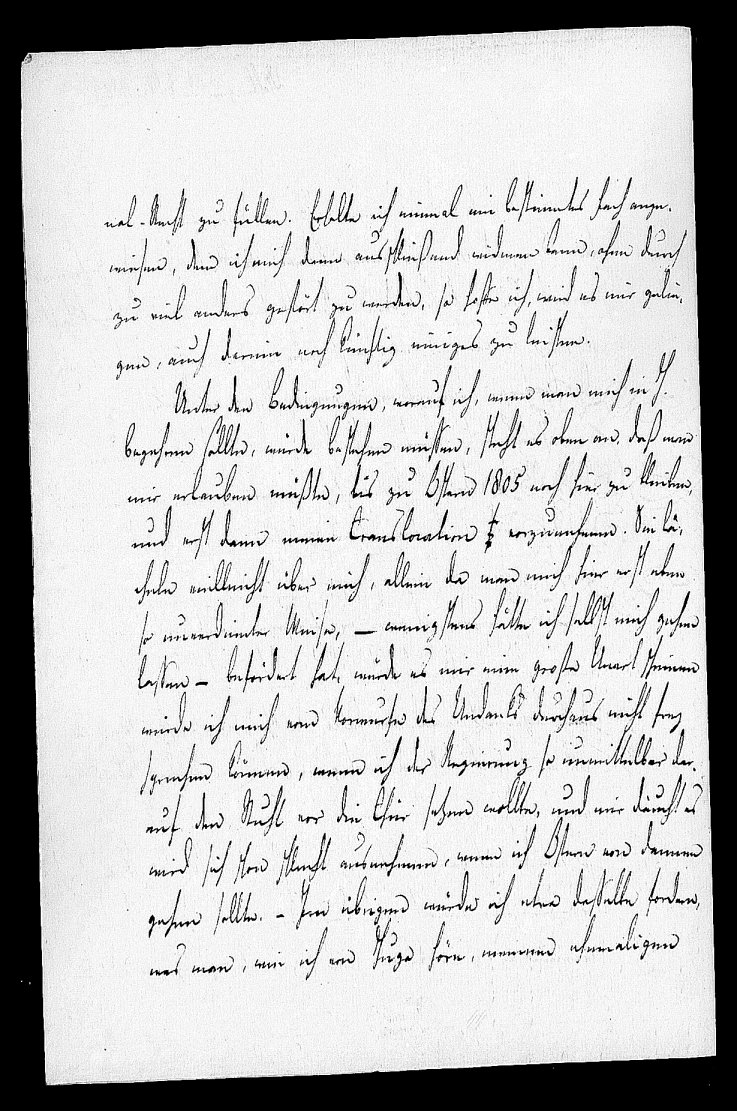 nal-Recht zu füllen. Erhalte ich einmal ein bestimmtes Fach ange-
wiesen, dem ich mich dann ausschließend widmen kann, ohne durch
zu viel anders gestört zu werden, so hoffe ich, wird es mir gelin-
gen, auch darin noch künftig einiges zu leisten.
Unter den Bedingungen, worauf ich, wenn man mich in H.
begehren sollte, würde bestehen müssen, steht es oben an, daß man
mir erlauben müßte, bis zu Ostern 1805 noch hier zu bleiben,
und erst dann meine Translocation vorzunehmen. Sie lä-
cheln vielleicht über mich, allein da man mich hier erst eben
so unverdienter Weise, — wenigstens hätte ich selbst mich gehen
lassen — befördert hat, würde es mir eine große Unart scheinen
würde ich mich vom Vorwurfe des Undanks durchaus nicht frey
sprechen können, wenn ich der Regierung so unmittelbar dar-
auf den Stuhl vor die Thür setzen wollte, und mir däucht es
wird sich schon schlecht ausnehmen, wenn ich Ostern von dannen
gehen sollte. – Im übrigen würde ich etwa dasselbe fordern,
was man, wie ich von Hugo höre, meinem ehemaligen